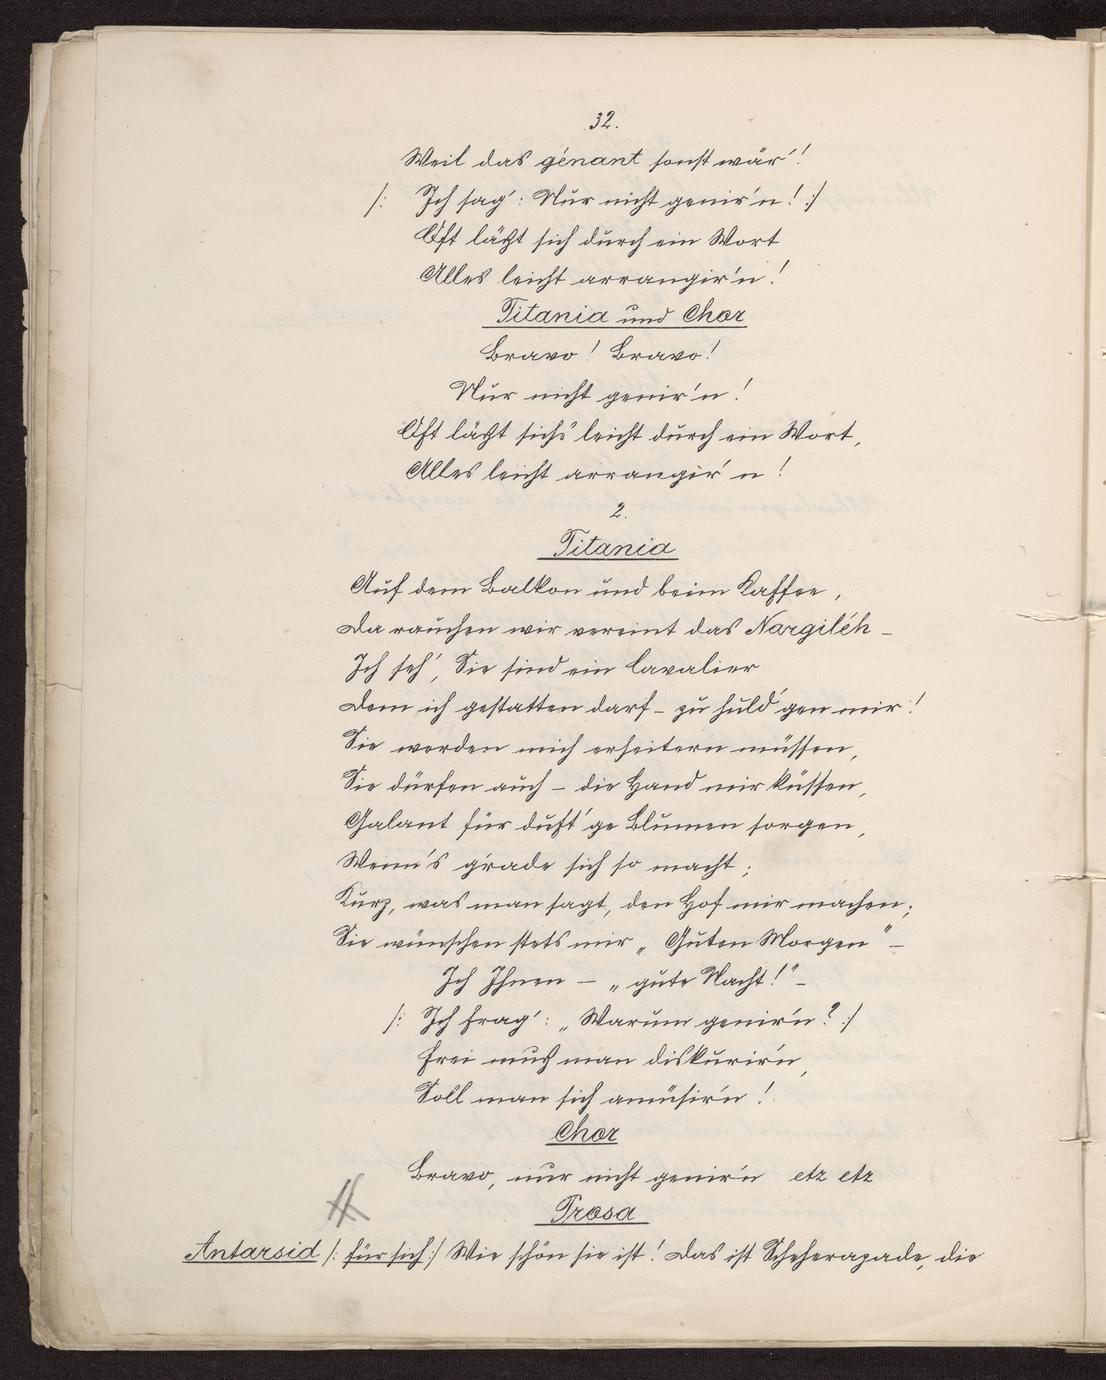 32.
Weil das génant sonst wär'!
/: Ich sag': Nur nicht genir'n! :/
Oft läßt sich durch ein Wort
Alles leicht arrangir'n!
Titania und Chor
Bravo! Bravo!
Nur nicht genir'n!
Oft läßt sichs' leicht durch ein Wort,
Alles leicht arrangir'n!
2.
Titania
Auf dem Balkon und beim Kaffee,
Da rauchen wir vereint das Nargiléh –
Ich seh', Sie sind ein Cavalier
Dem ich gestatten darf – zu huld'gen mir!
Sie werden mich erheitern müssen,
Sie dürfen auch – die Hand mir küssen,
Galant für duft'ge Blumen sorgen,
Wenn's g'rade sich so macht;
Kurz, was man sagt, den Hof mir machen;
Sie wünschen stets mir „Guten Morgen" –
Ich Ihnen – „gute Nacht!" –
/: Ich frag': „Warum genir'n? :/
Frei muß man diskurir'n,
Soll man sich amüsir'n!
Chor
Bravo, nur nicht genir'n etz etz
Prosa
Antarsid /: für sich :/ Wie schön sie ist! Das ist Scheherazade, die